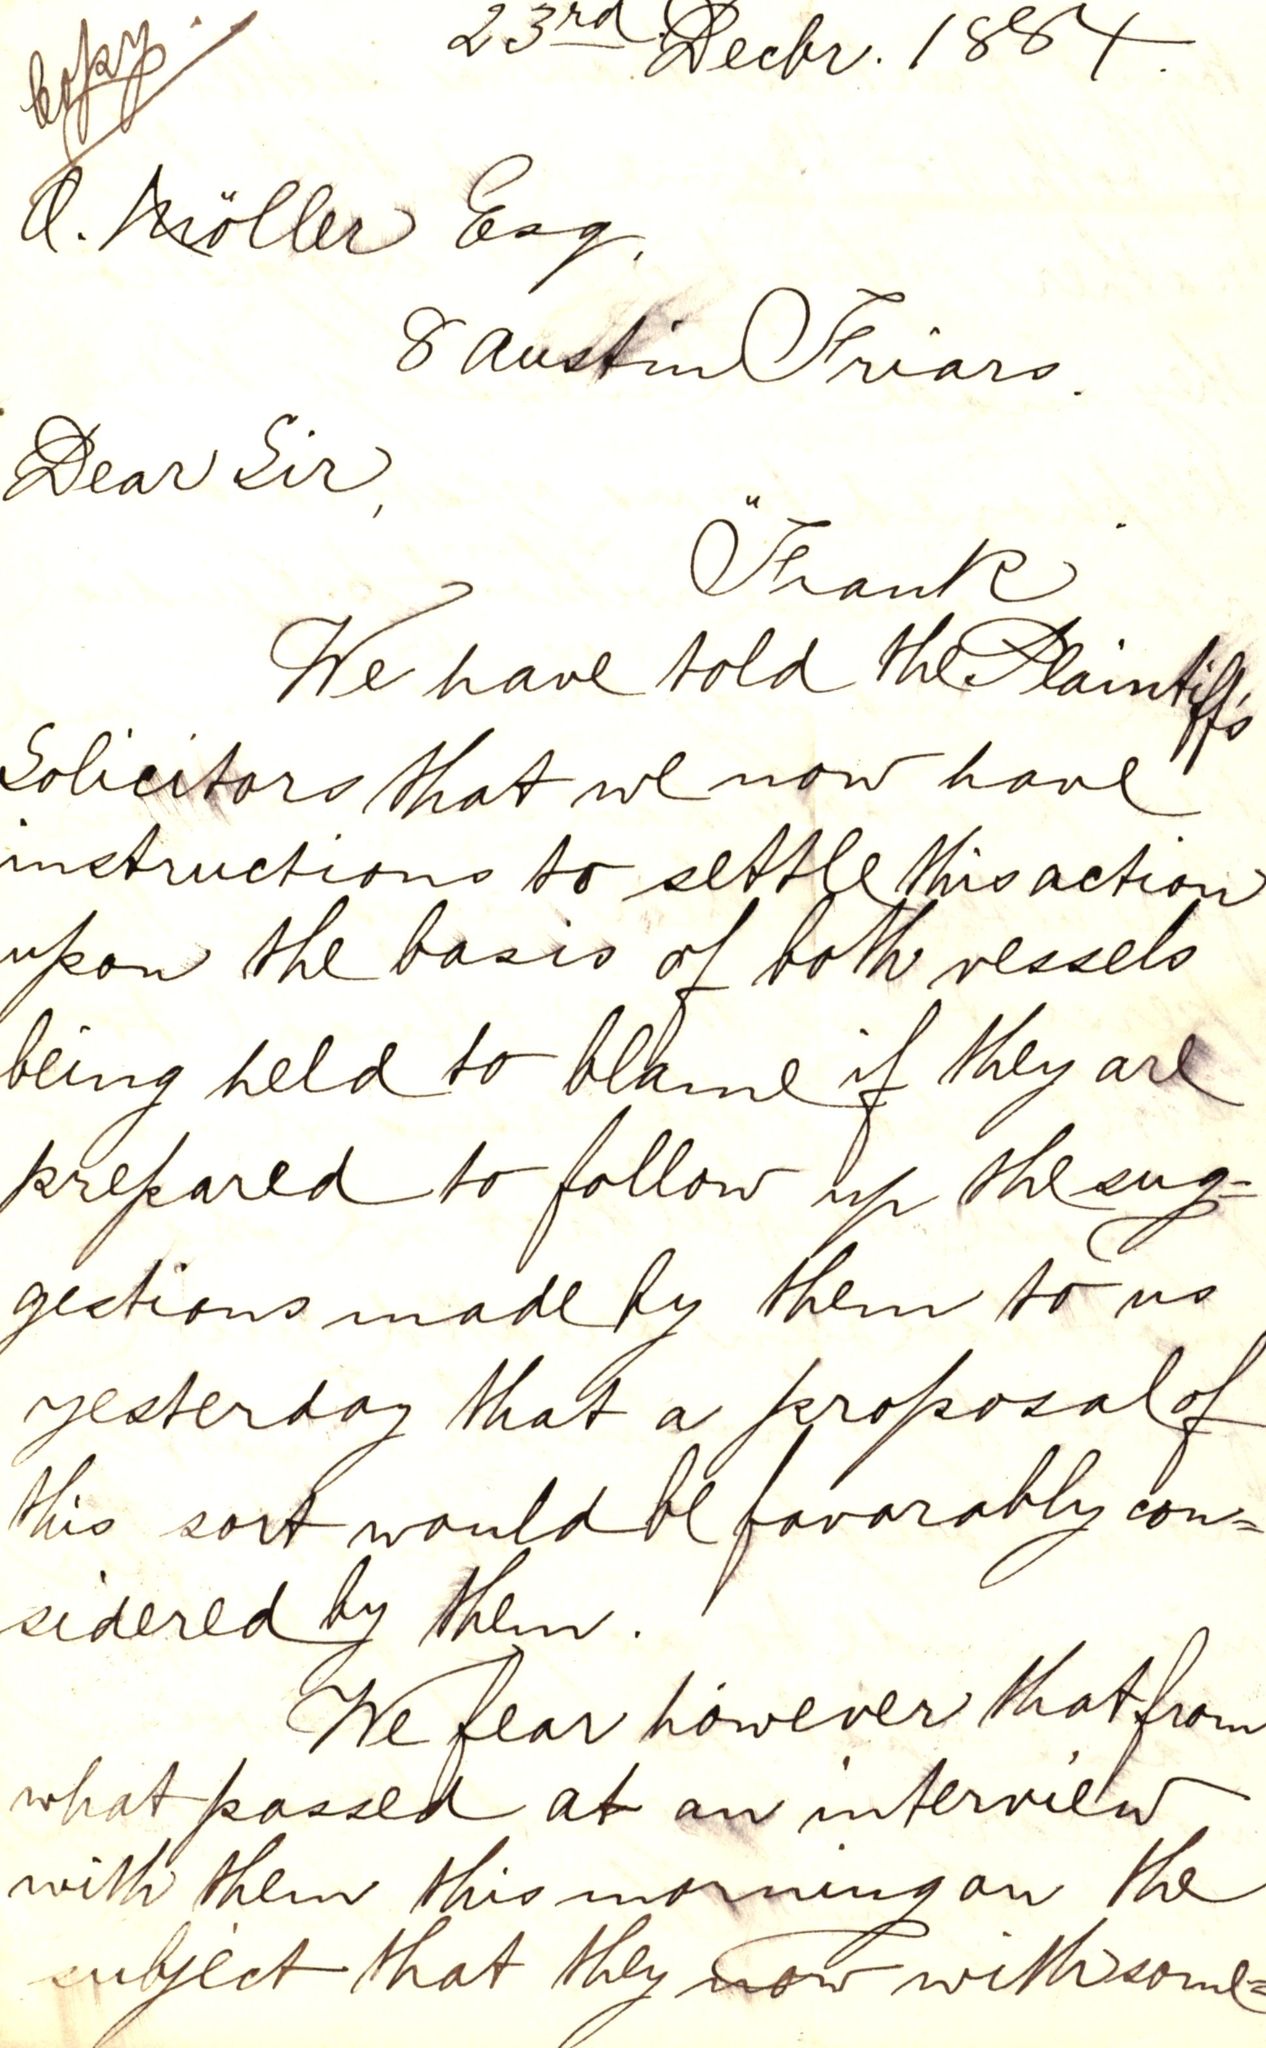 23rd Decbr. 1884.
Copy.
A. Möller Esq.
8 Austin Friars.
Dear Sir,
"Frank"
We have told the Plaintiff's
Solicitors that we now have
instructions to settle this action
upon the basis of both vessels
being held to blame if they are
prepared to follow up the sug=
gestions made by them to us
yesterday that a proposal of
this sort would be favorably con=
sidered by them.
We fear however that from
what passed at an interview
with them this morning on the
subject that they now with some=